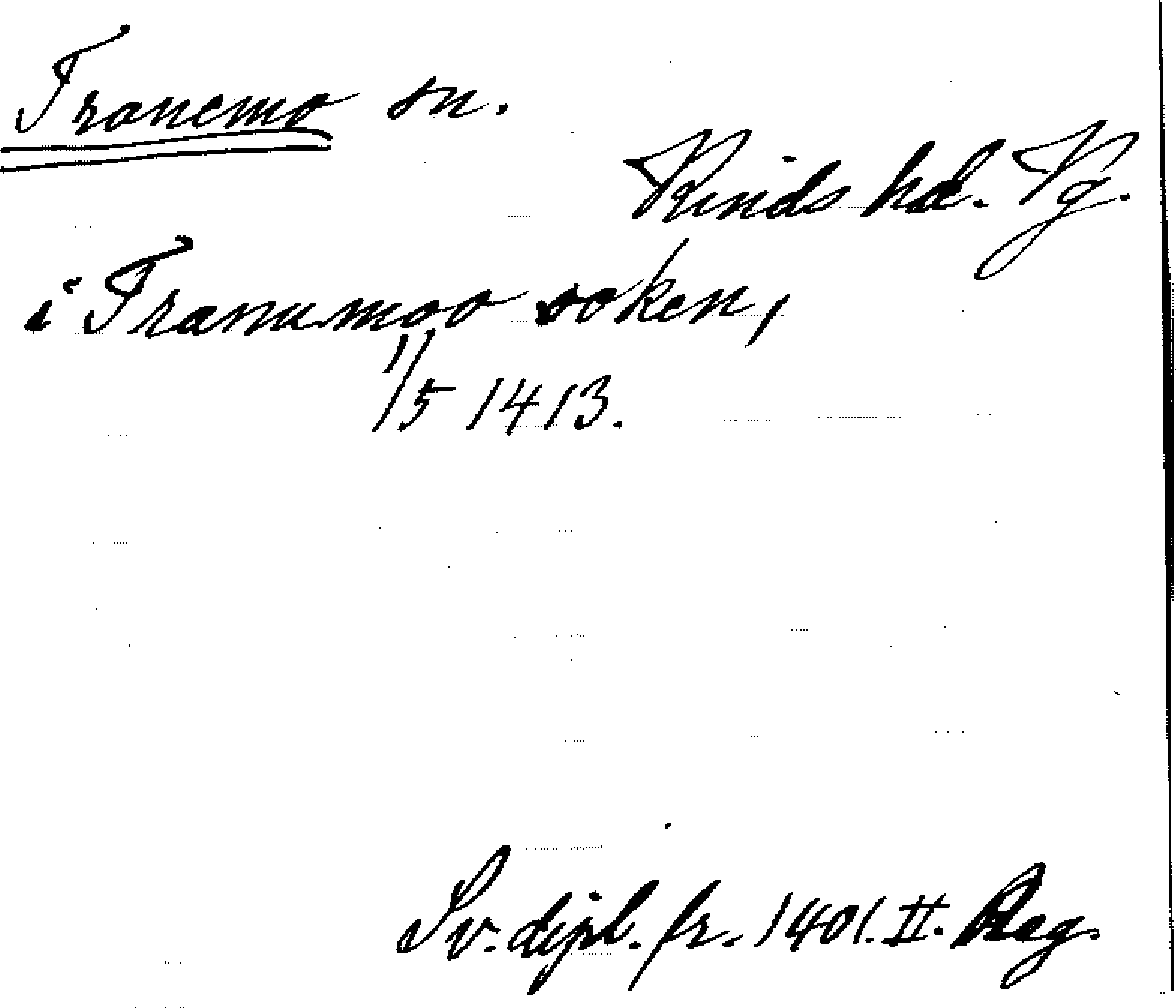 Tranemo sn.
Kinds hd. Vg.
i Tranumoo soken,
11/5 1413.
Sv. dipl. fr. 1401. II. Reg.